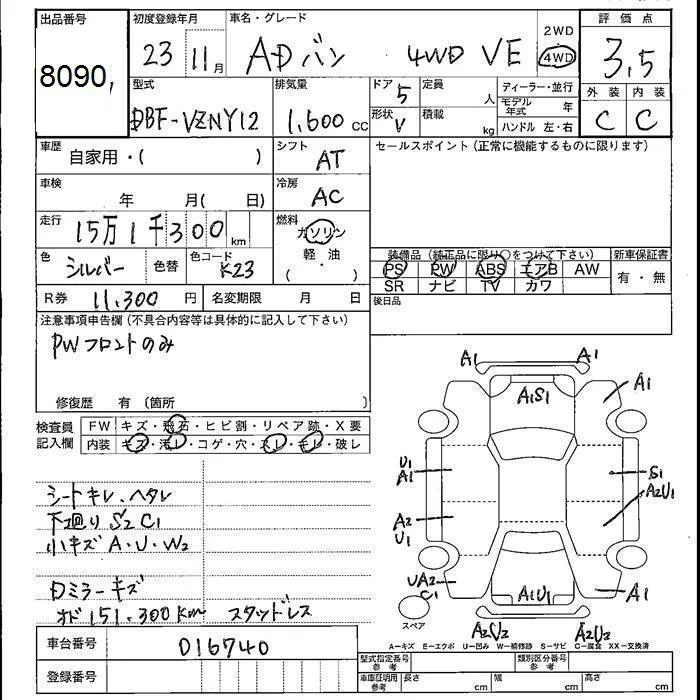 出品番号 初度登録年月 車名・グレード 2WD 評価点
8090, 23 11月 ADバン 4WD VE 4WD 3.5
型式 排気量 ドア 5 定員 人 ディーラー・並行 外装 内装
DBF-VZNY12 1,600cc 形状 V 積載 kg モデル年式 年 C C
ハンドル 左・右
車歴 自家用・( ) シフト AT セールスポイント(正常に機能するものに限ります)
車検 年 月( 日) 冷房 AC
走行 15万1千300km 燃料 ガソリン
軽・油
( )
色 シルバー 色替 色コード K23
装備品(純正品に限り○をつけて下さい) 新車保証書
PS PW ABS エアB AW 有・無
SR ナビ TV カワ
R券 11,300円 名変期限 月 日 後日品
注意事項申告欄(不具合内容等は具体的に記入して下さい)
PWフロントのみ
修復歴 有 (箇所 )
検査員記入欄 FW キズ・飛石・ヒビ割・リペア跡・X要
内装 キズ・汚レ・コゲ・穴・スレ・キレ・破レ
シートキレ、ヘタレ
下廻り S2 C1
小キズ A・U・W2
Dミラーキズ
オド 151,300km スタッドレス
A1 A1
A1S1 A1
U1 A1 S1
A2U1
A2 U1
UA2 C1 A1U1 A1
スペア
A2U2 A2U2
A=キズ E=エクボ U=凹み W=補修跡 S=サビ C=腐食 XX=交換済
車台番号 016740
登録番号
型式指定番号 参考 類別区分番号 参考
車庫証明用 参考 長さ cm 幅 cm 高さ cm